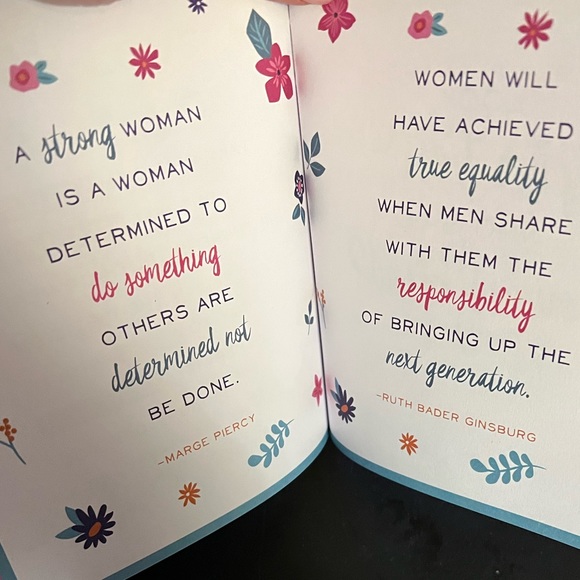 A strong WOMAN
IS A WOMAN
DETERMINED TO
do something
OTHERS ARE
determined not
BE DONE.
–MARGE PIERCY
WOMEN WILL
HAVE ACHIEVED
true equality
WHEN MEN SHARE
WITH THEM THE
responsibility
OF BRINGING UP THE
next generation.
–RUTH BADER GINSBURG